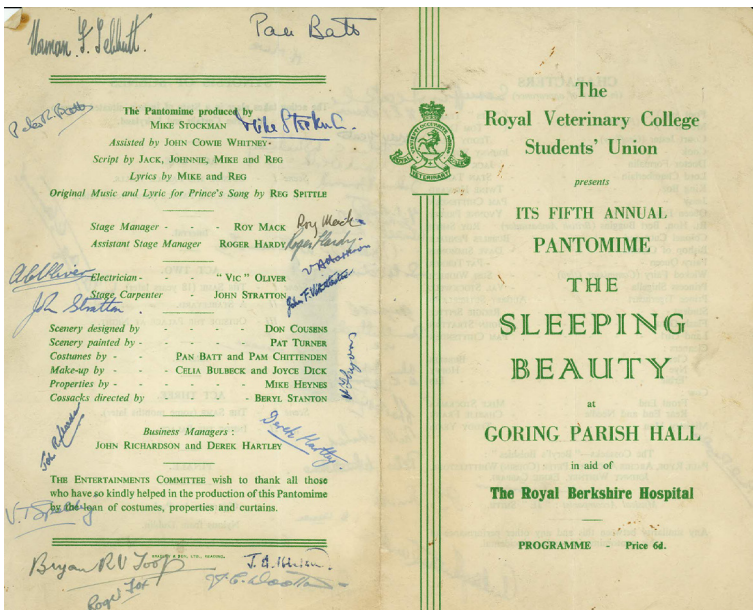 Pam Batt
The Pantomime produced by
MIKE STOCKMAN
Mike Stockman
Assisted by JOHN COWIE WHITNEY
Script by JACK, JOHNNIE, MIKE and REG
Lyrics by MIKE and REG
Original Music and Lyric for Prince's Song by REG SPITTLE
Stage Manager - - ROY MACK
Roy Mack
Assistant Stage Manager ROGER HARDY
Roger Hardy
Electrician - - "VIC" OLIVER
Stage Carpenter - JOHN STRATTON
John Stratton
Scenery designed by DON COUSENS
Scenery painted by - - PAT TURNER
Costumes by - - PAN BATT and PAM CHITTENDEN
Make-up by - CELIA BULBECK and JOYCE DICK
Properties by - - - MIKE HEYNES
Cossacks directed by - - BERYL STANTON
Business Managers :
JOHN RICHARDSON and DEREK HARTLEY
Derek Hartley.
THE ENTERTAINMENTS COMMITTEE wish to thank all those
who have so kindly helped in the production of this Pantomime
by the loan of costumes, properties and curtains.
Roger Fox
The
Royal Veterinary College
Students' Union
presents
ITS FIFTH ANNUAL
PANTOMIME
THE
SLEEPING
BEAUTY
at
GORING PARISH HALL
in aid of
The Royal Berkshire Hospital
PROGRAMME - Price 6d.